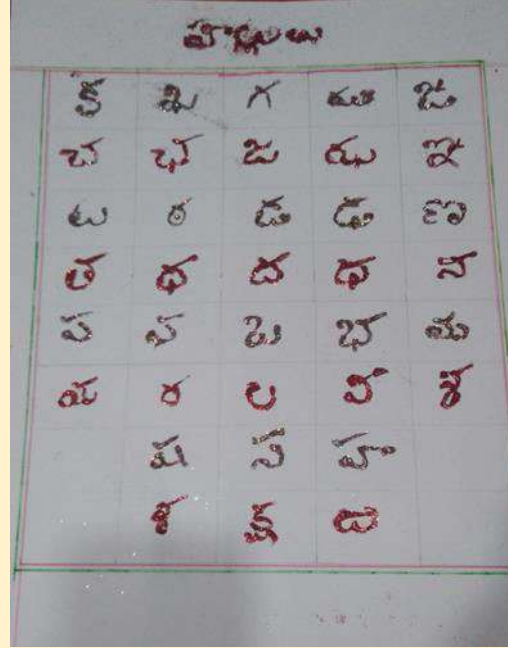 హల్లులు
క ఖ గ ఘ ఙ
చ ఛ జ ఝ ఞ
ట ఠ డ ఢ ణ
త థ ద ధ న
ప ఫ బ భ మ
య ర ల వ శ
ష స హ
ళ క్ష ఱ